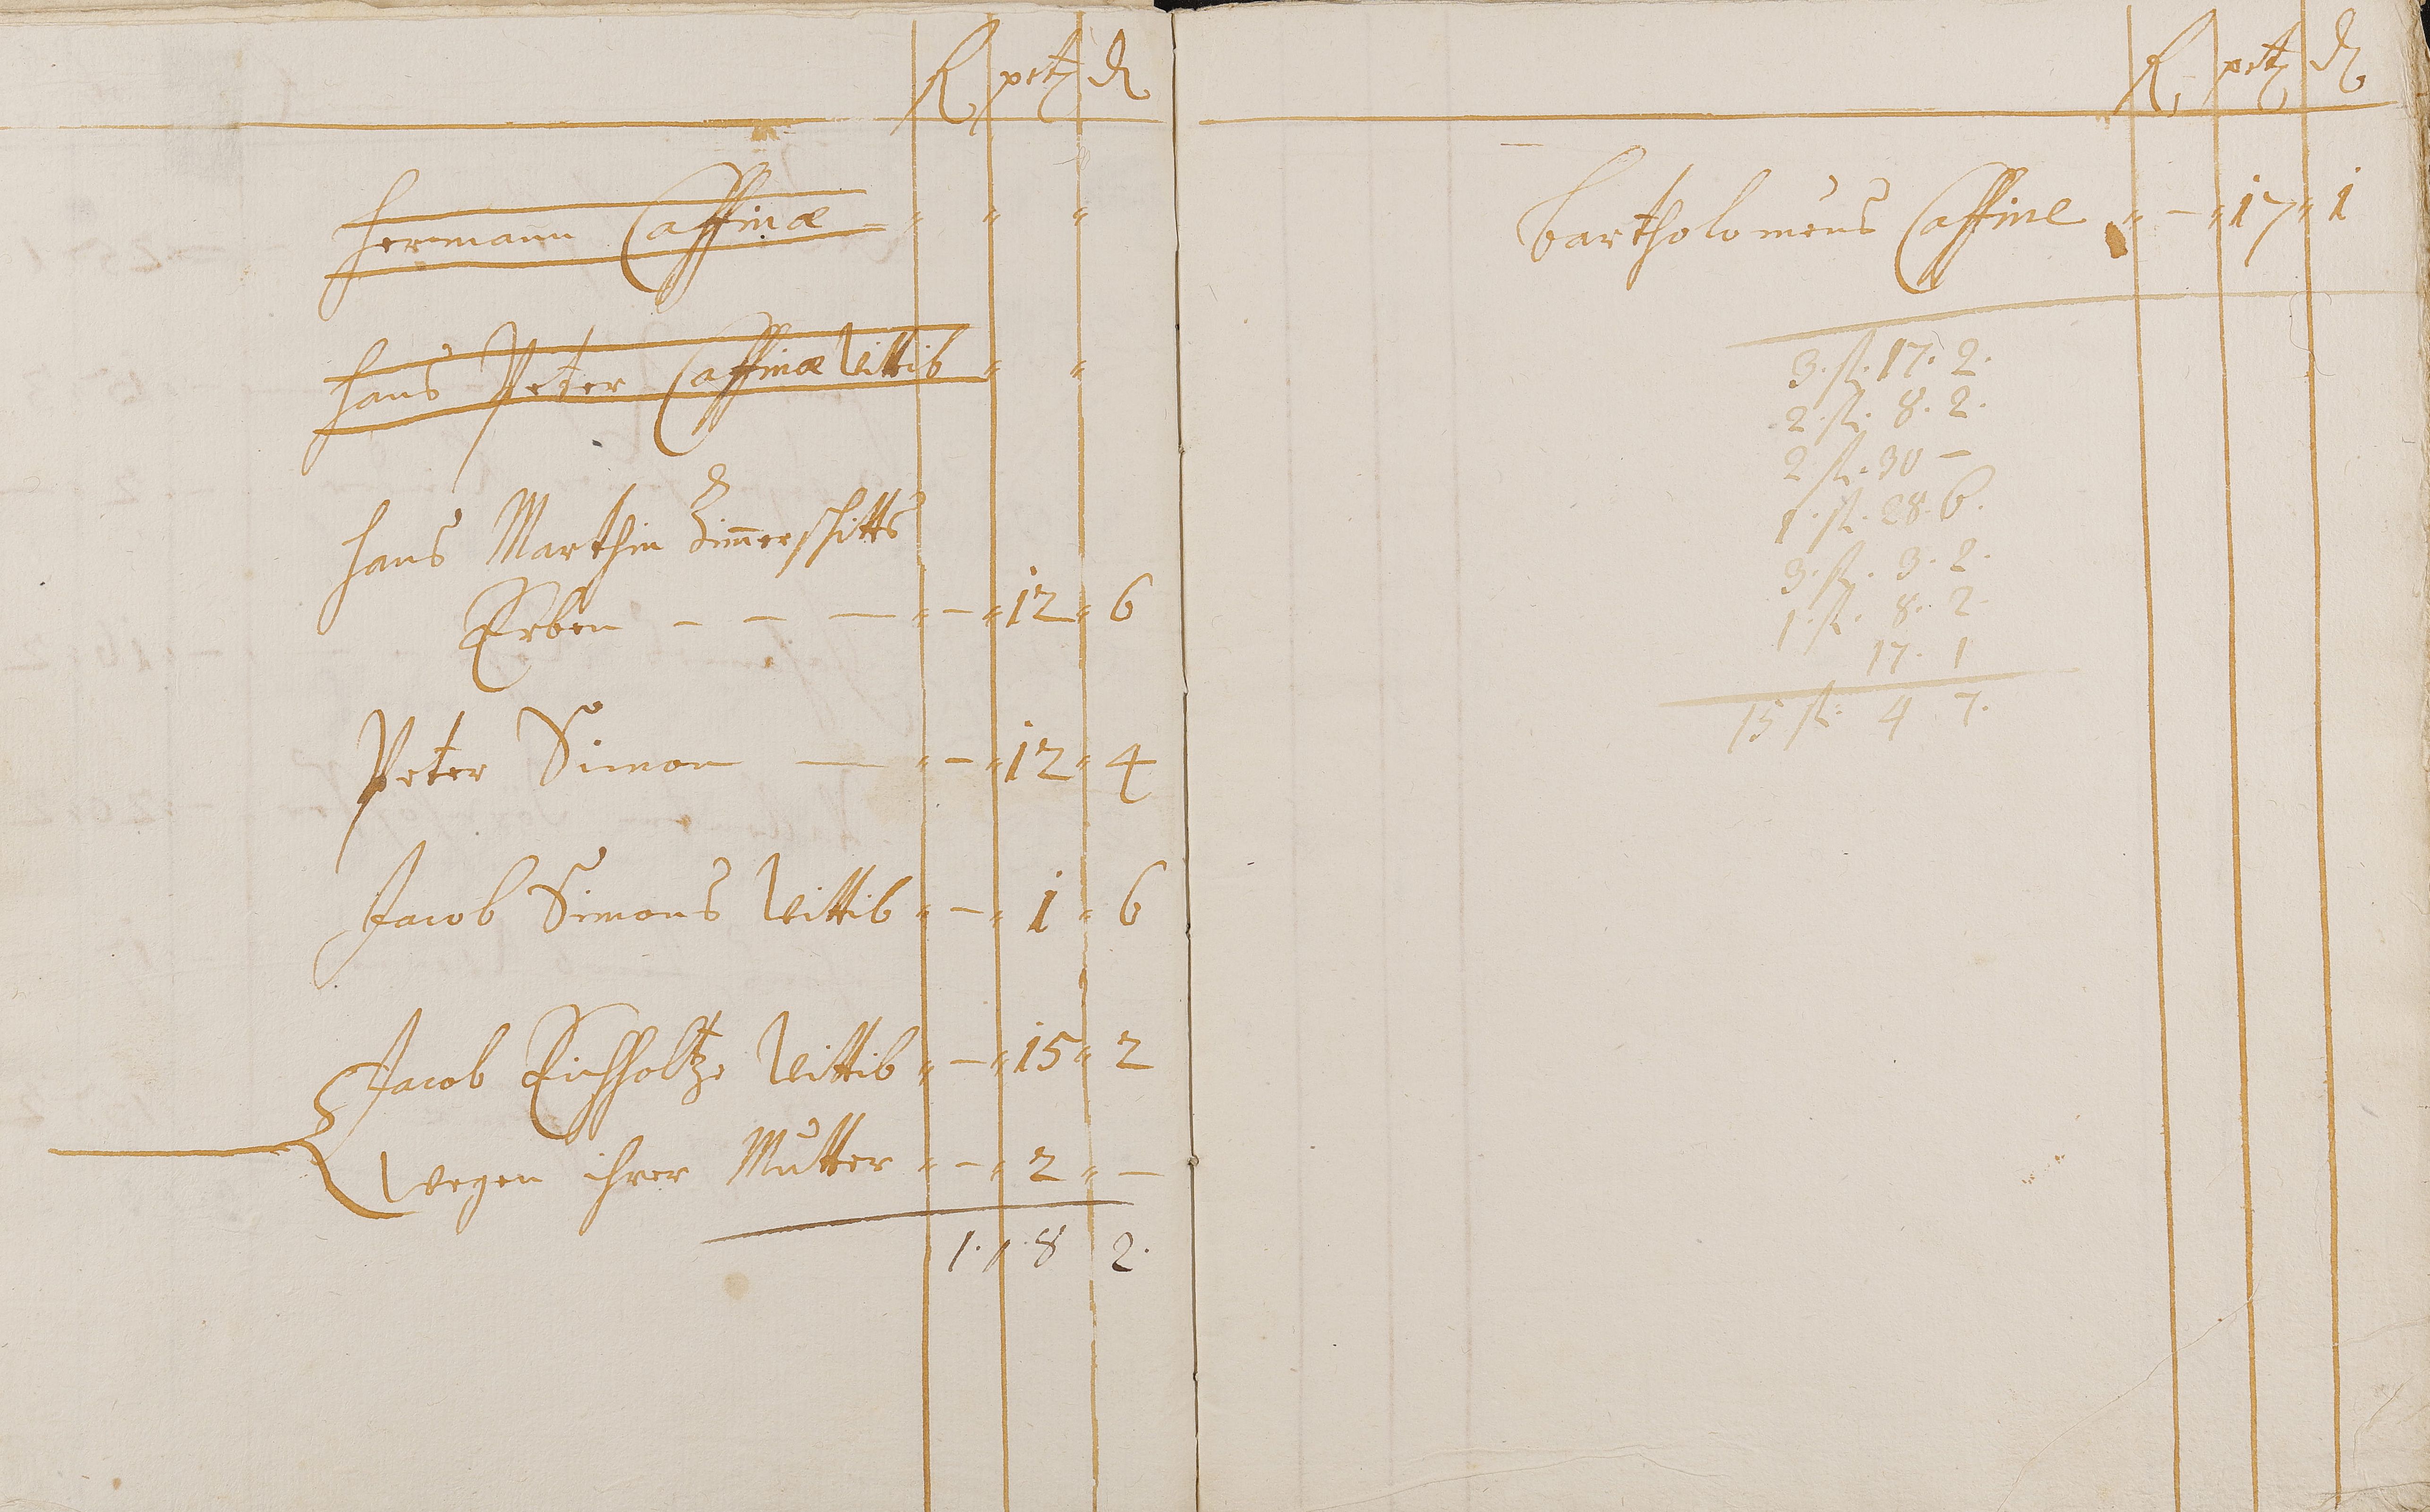 R petz ₰
Hermann Caffinæ – " " "
Hans Peter Caffinæ Wittib " "
Hans Marthin Zim̄erschitts
Erben – – — " – " 12 " 6
Peter Simon — " – " 12 " 4
Jacob Simons Wittib " – " 1 " 6
Jacob Eichholtz Wittib " – " 15 " 2
wegen ihrer Mutter " – " 2 " –
1. 1. 8 2.
R petz ₰
Bartholomeus Caffine " – " 17 " 1
3. fl. 17. 2.
2. fl. 8. 2.
2 fl. 30 –
1. fl. 28. 6.
3. fl. 3. 2.
1. fl. 8. 2.
17. 1
15 fl. 4 7.